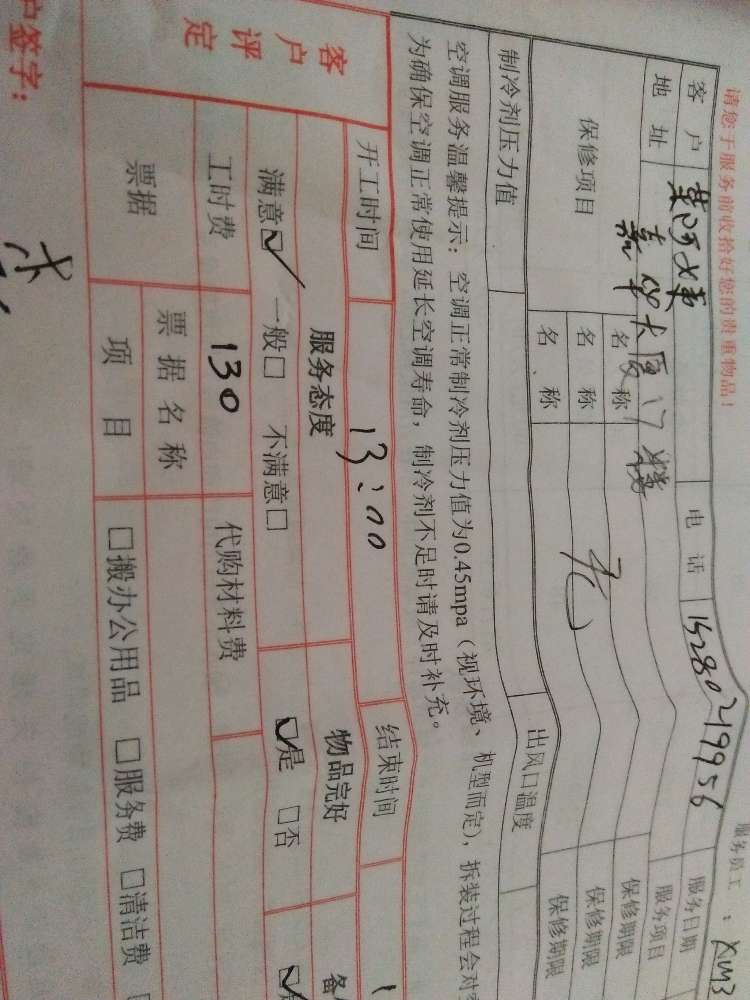 请您于服务前收拾好您的贵重物品！ 服务员工：XM3
客户 电话 15280219956 服务日期
地址 嘉华大厦17楼 服务项目
保修项目 名称 保修期限
名称 无 保修期限
名称 保修期限
制冷剂压力值 出风口温度
空调服务温馨提示：空调正常制冷剂压力值为0.45mpa（视环境、机型而定），拆装过程会对空
为确保空调正常使用延长空调寿命，制冷剂不足时请及时补充。
开工时间 13:00 结束时间 1
客户评定 服务态度 物品完好 备
满意☑ 一般□ 不满意□ ☑是 □否
工时费 130 代购材料费
票据 票据名称
项目 □搬办公用品 □服务费 □清洁费
户签字：